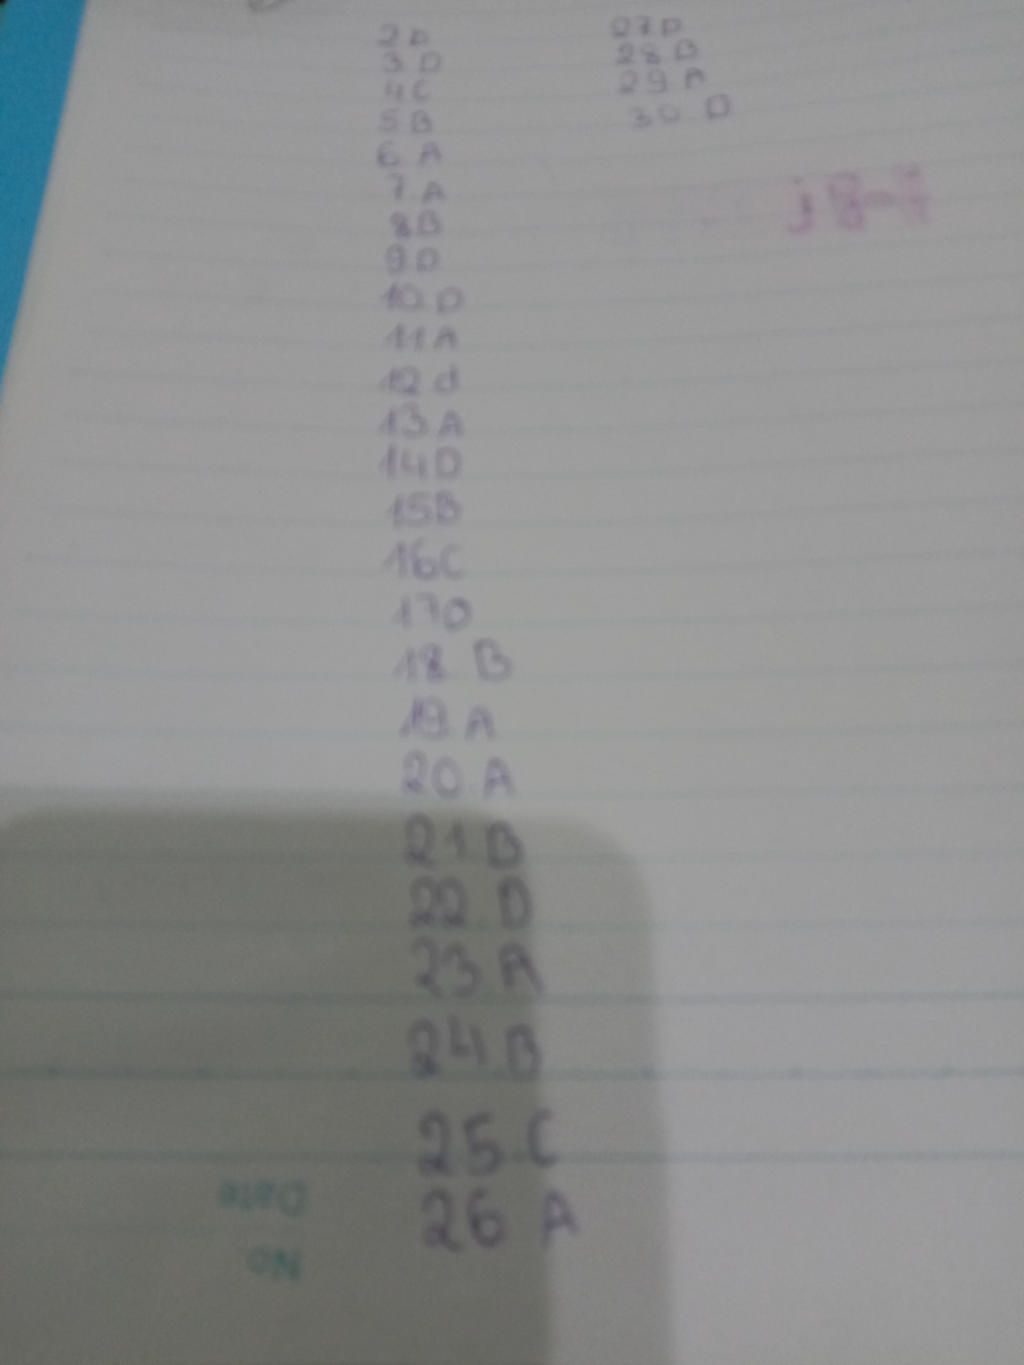 2 D
3 D
4 C
5 B
6 A
7 A
8 B
9 D
10 D
11 A
12 d
13 A
14 D
15 B
16 C
17 D
18 B
19 A
20 A
21 B
22 D
23 A
24 B
25 C
26 A
27 D
28 B
29 A
30 D
Date
No